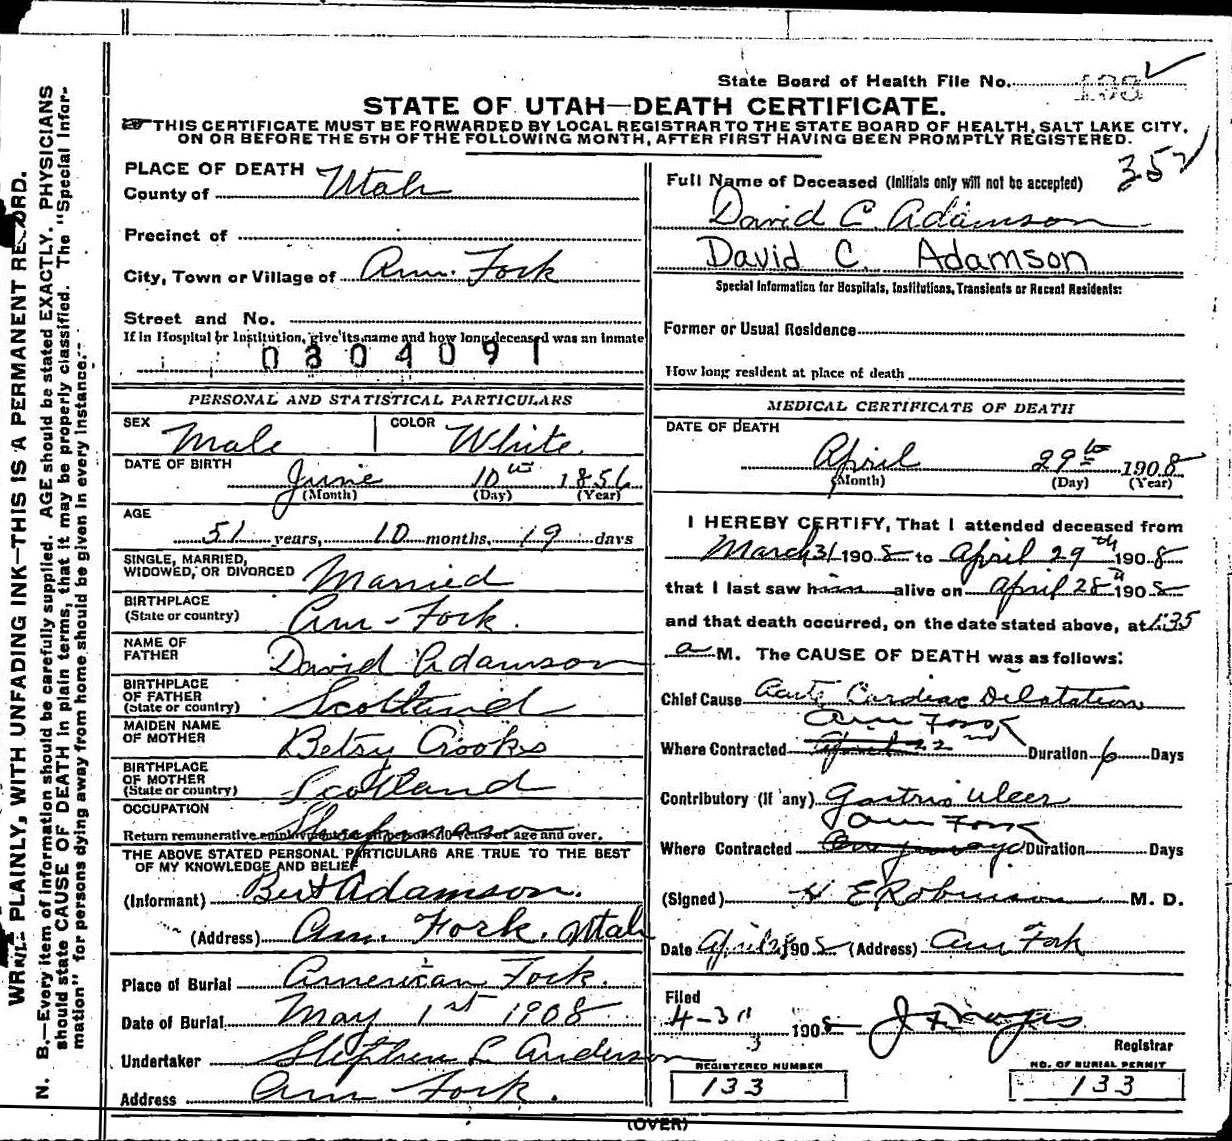 State Board of Health File No. 133
STATE OF UTAH—DEATH CERTIFICATE.
THIS CERTIFICATE MUST BE FORWARDED BY LOCAL REGISTRAR TO THE STATE BOARD OF HEALTH, SALT LAKE CITY,
ON OR BEFORE THE 5TH OF THE FOLLOWING MONTH, AFTER FIRST HAVING BEEN PROMPTLY REGISTERED.
352
WRITE PLAINLY, WITH UNFADING INK—THIS IS A PERMANENT RECORD.
N. B.—Every item of information should be carefully supplied. AGE should be stated EXACTLY. PHYSICIANS
should state CAUSE OF DEATH in plain terms, that it may be properly classified. The "Special Infor-
mation" for persons dying away from home should be given in every instance.
PLACE OF DEATH
County of Utah
Precinct of
City, Town or Village of Am. Fork
Street and No.
If in Hospital or Institution, give its name and how long deceased was an inmate
0804091
PERSONAL AND STATISTICAL PARTICULARS
SEX Male COLOR White
DATE OF BIRTH June 10th 1856
(Month) (Day) (Year)
AGE
51 years, 10 months, 19 days
SINGLE, MARRIED,
WIDOWED, OR DIVORCED Married
BIRTHPLACE
(State or country) Am-Fork.
NAME OF
FATHER David Adamson
BIRTHPLACE
OF FATHER
(State or country) Scotland
MAIDEN NAME
OF MOTHER Betsy Crooks
BIRTHPLACE
OF MOTHER
(State or country) Scotland
OCCUPATION
Return remunerative employment in all persons 10 years of age and over.
THE ABOVE STATED PERSONAL PARTICULARS ARE TRUE TO THE BEST
OF MY KNOWLEDGE AND BELIEF
(Informant) Bert Adamson.
(Address) Am. Fork. Utah
Place of Burial American Fork.
Date of Burial May 1st 1908
Undertaker Stephen L Anderson
Address Am Fork.
Full Name of Deceased (Initials only will not be accepted)
David C. Adamson
David C. Adamson
Special Information for Hospitals, Institutions, Transients or Recent Residents:
Former or Usual Residence
How long resident at place of death
MEDICAL CERTIFICATE OF DEATH
DATE OF DEATH
April 29th 1908
(Month) (Day) (Year)
I HEREBY CERTIFY, That I attended deceased from
March 31 1908 to April 29th 1908
that I last saw him alive on April 28th 1908
and that death occurred, on the date stated above, at 1:35
a M. The CAUSE OF DEATH was as follows:
Chief Cause Acute Cardiac Dilatation
Am Fork
Where Contracted April 22nd Duration 6 Days
Contributory (if any) Gastric Ulcer
Am Fork
Where Contracted Duration Days
(Signed) H E Robinson M. D.
Date April 1908 (Address) Am Fork
Filed
4-30 1908
Registrar
REGISTERED NUMBER
133
NO. OF BURIAL PERMIT
133
(OVER)